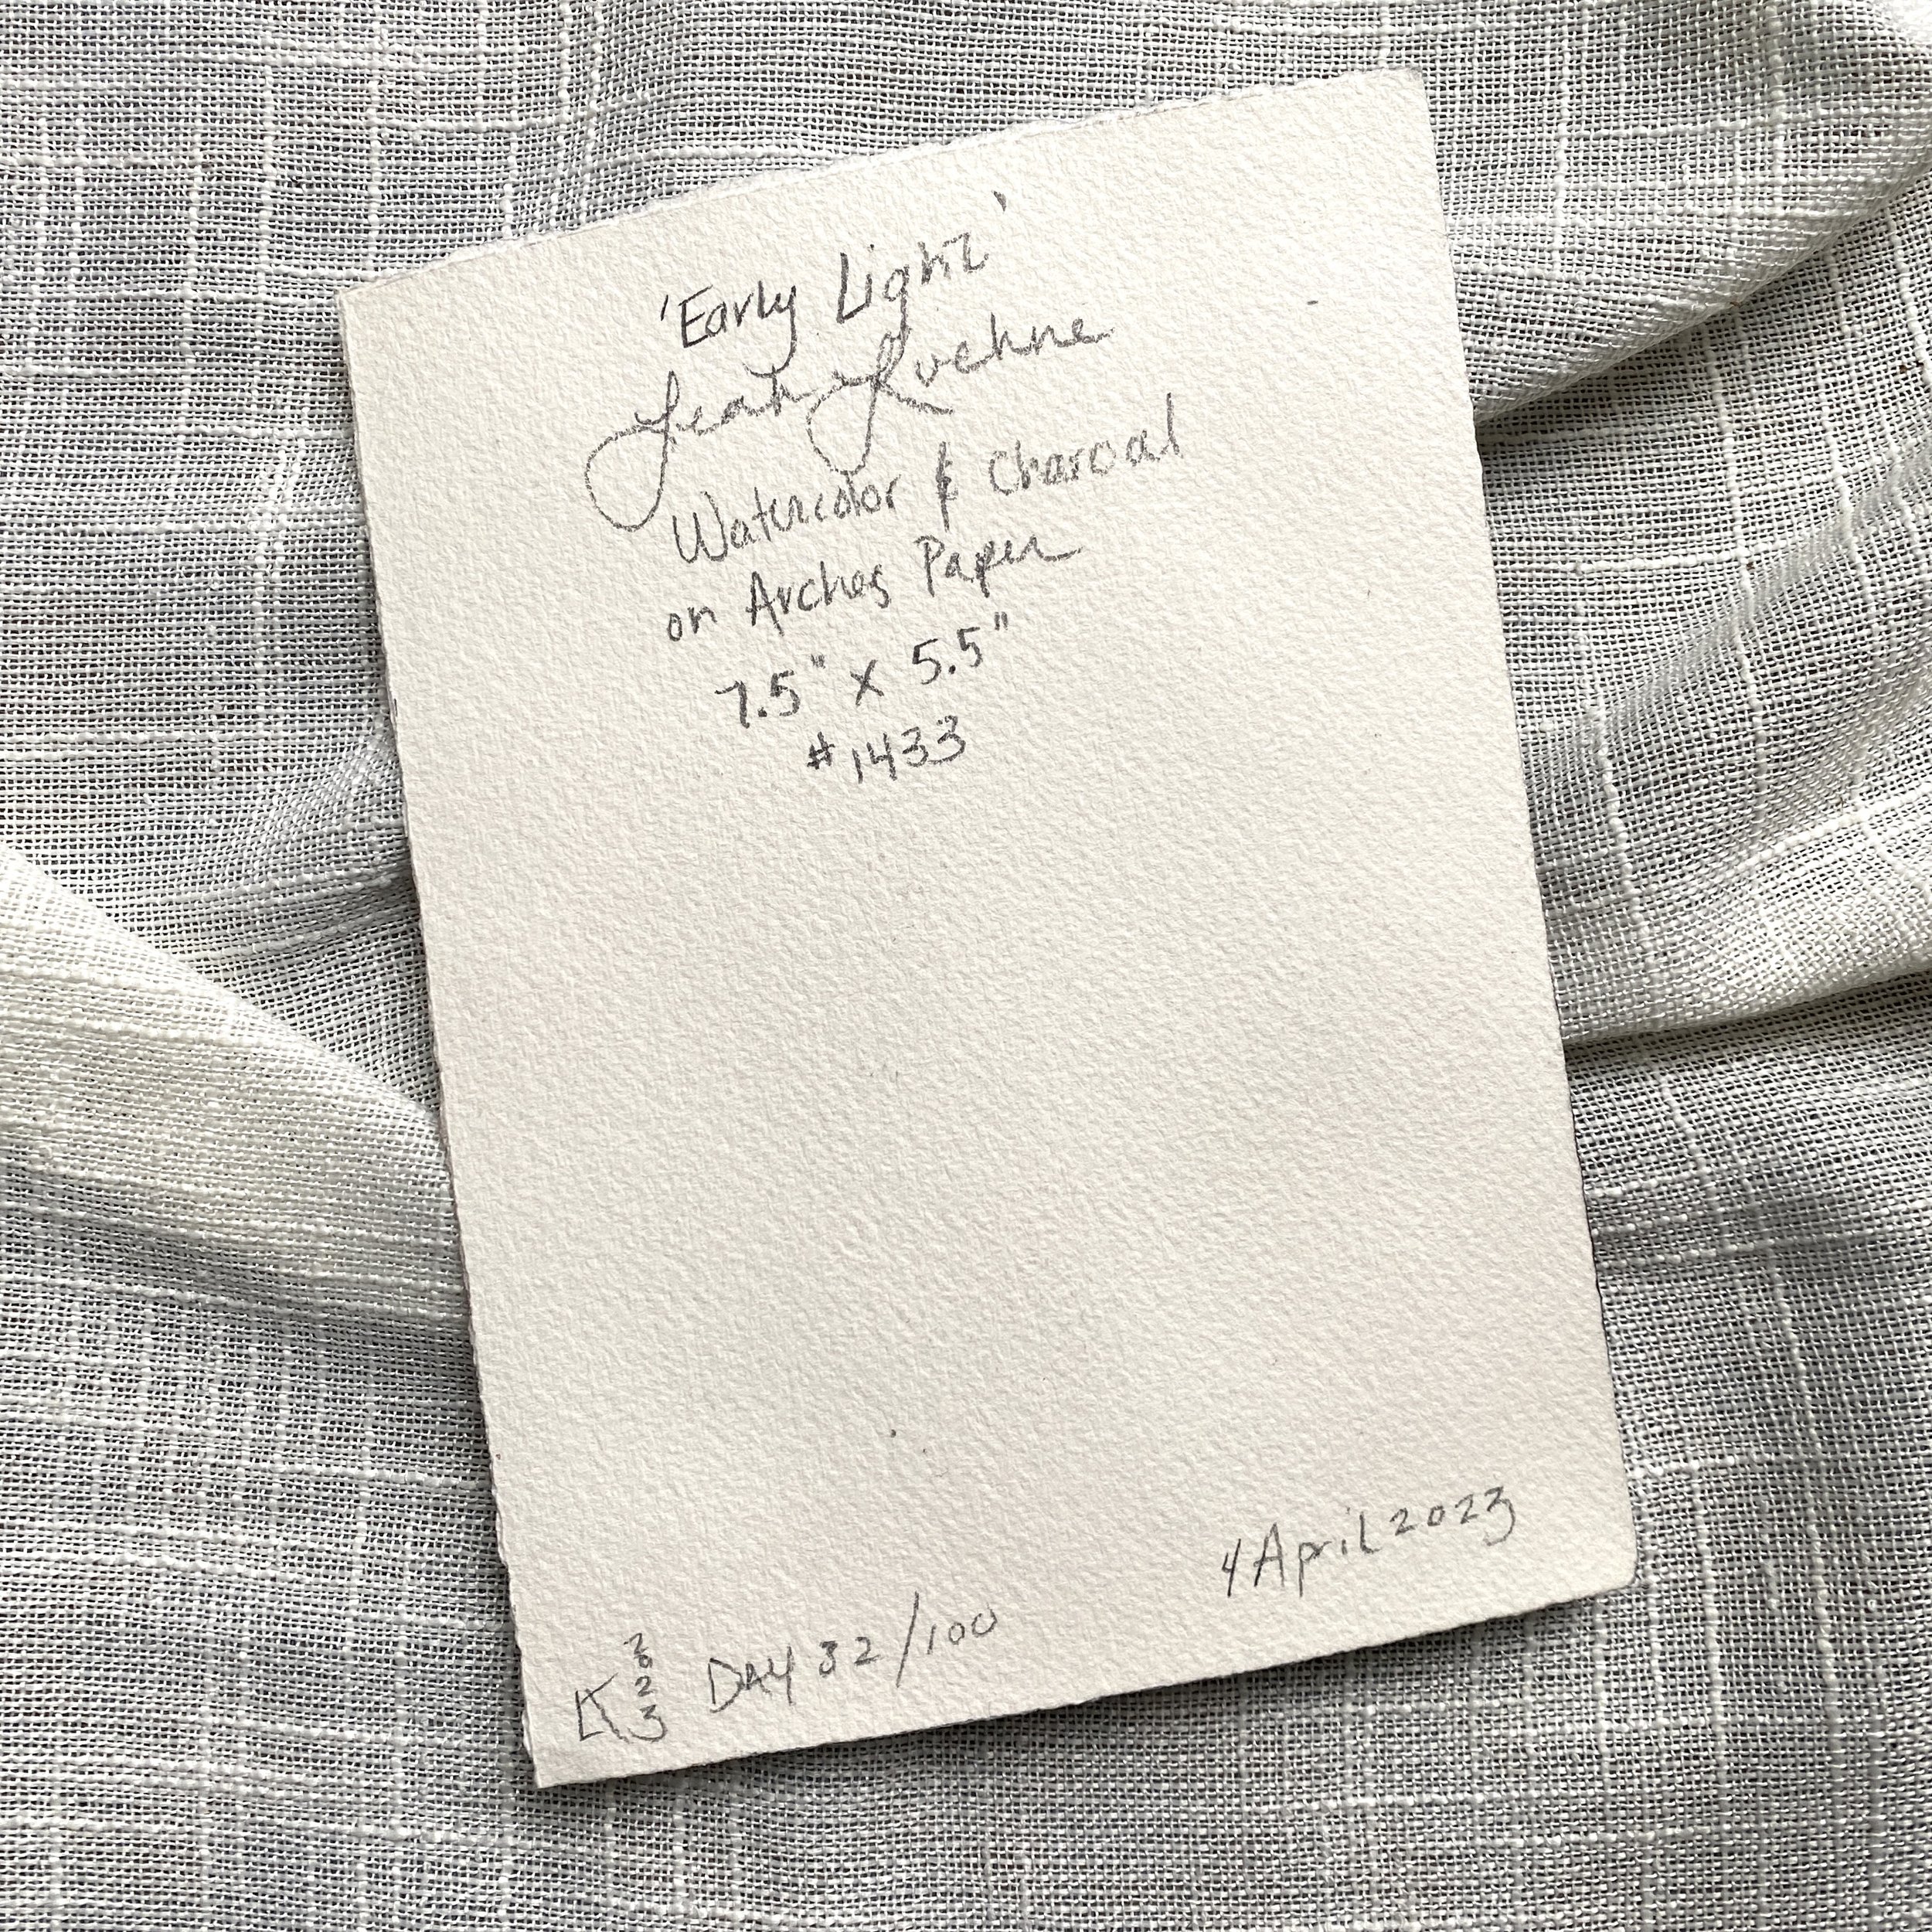 'Early Light'
Leah Luehne
Watercolor & Charcoal
on Arches Paper
7.5" x 5.5"
#1433
4 April 2023
2023 Day 32/100